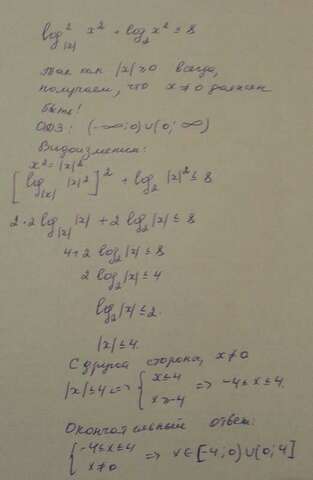 log²_|x| x² + log₂ x² ≤ 8
Так как |x| ≥ 0 всегда,
получаем, что x ≠ 0 должен
быть!
ОДЗ: (-∞; 0) ∪ (0; ∞)
Видоизменим:
x² = |x|²
[log_|x| |x|²]² + log₂ |x|² ≤ 8
2·2 log_|x| |x| + 2 log₂ |x| ≤ 8
4 + 2 log₂ |x| ≤ 8
2 log₂ |x| ≤ 4
log₂ |x| ≤ 2.
|x| ≤ 4.
С другой стороны, x ≠ 0
|x| ≤ 4 => { x ≤ 4 x ≥ -4 => -4 ≤ x ≤ 4.
Окончательный ответ:
{ -4 ≤ x ≤ 4 x ≠ 0 => x ∈ [-4; 0) ∪ (0; 4]